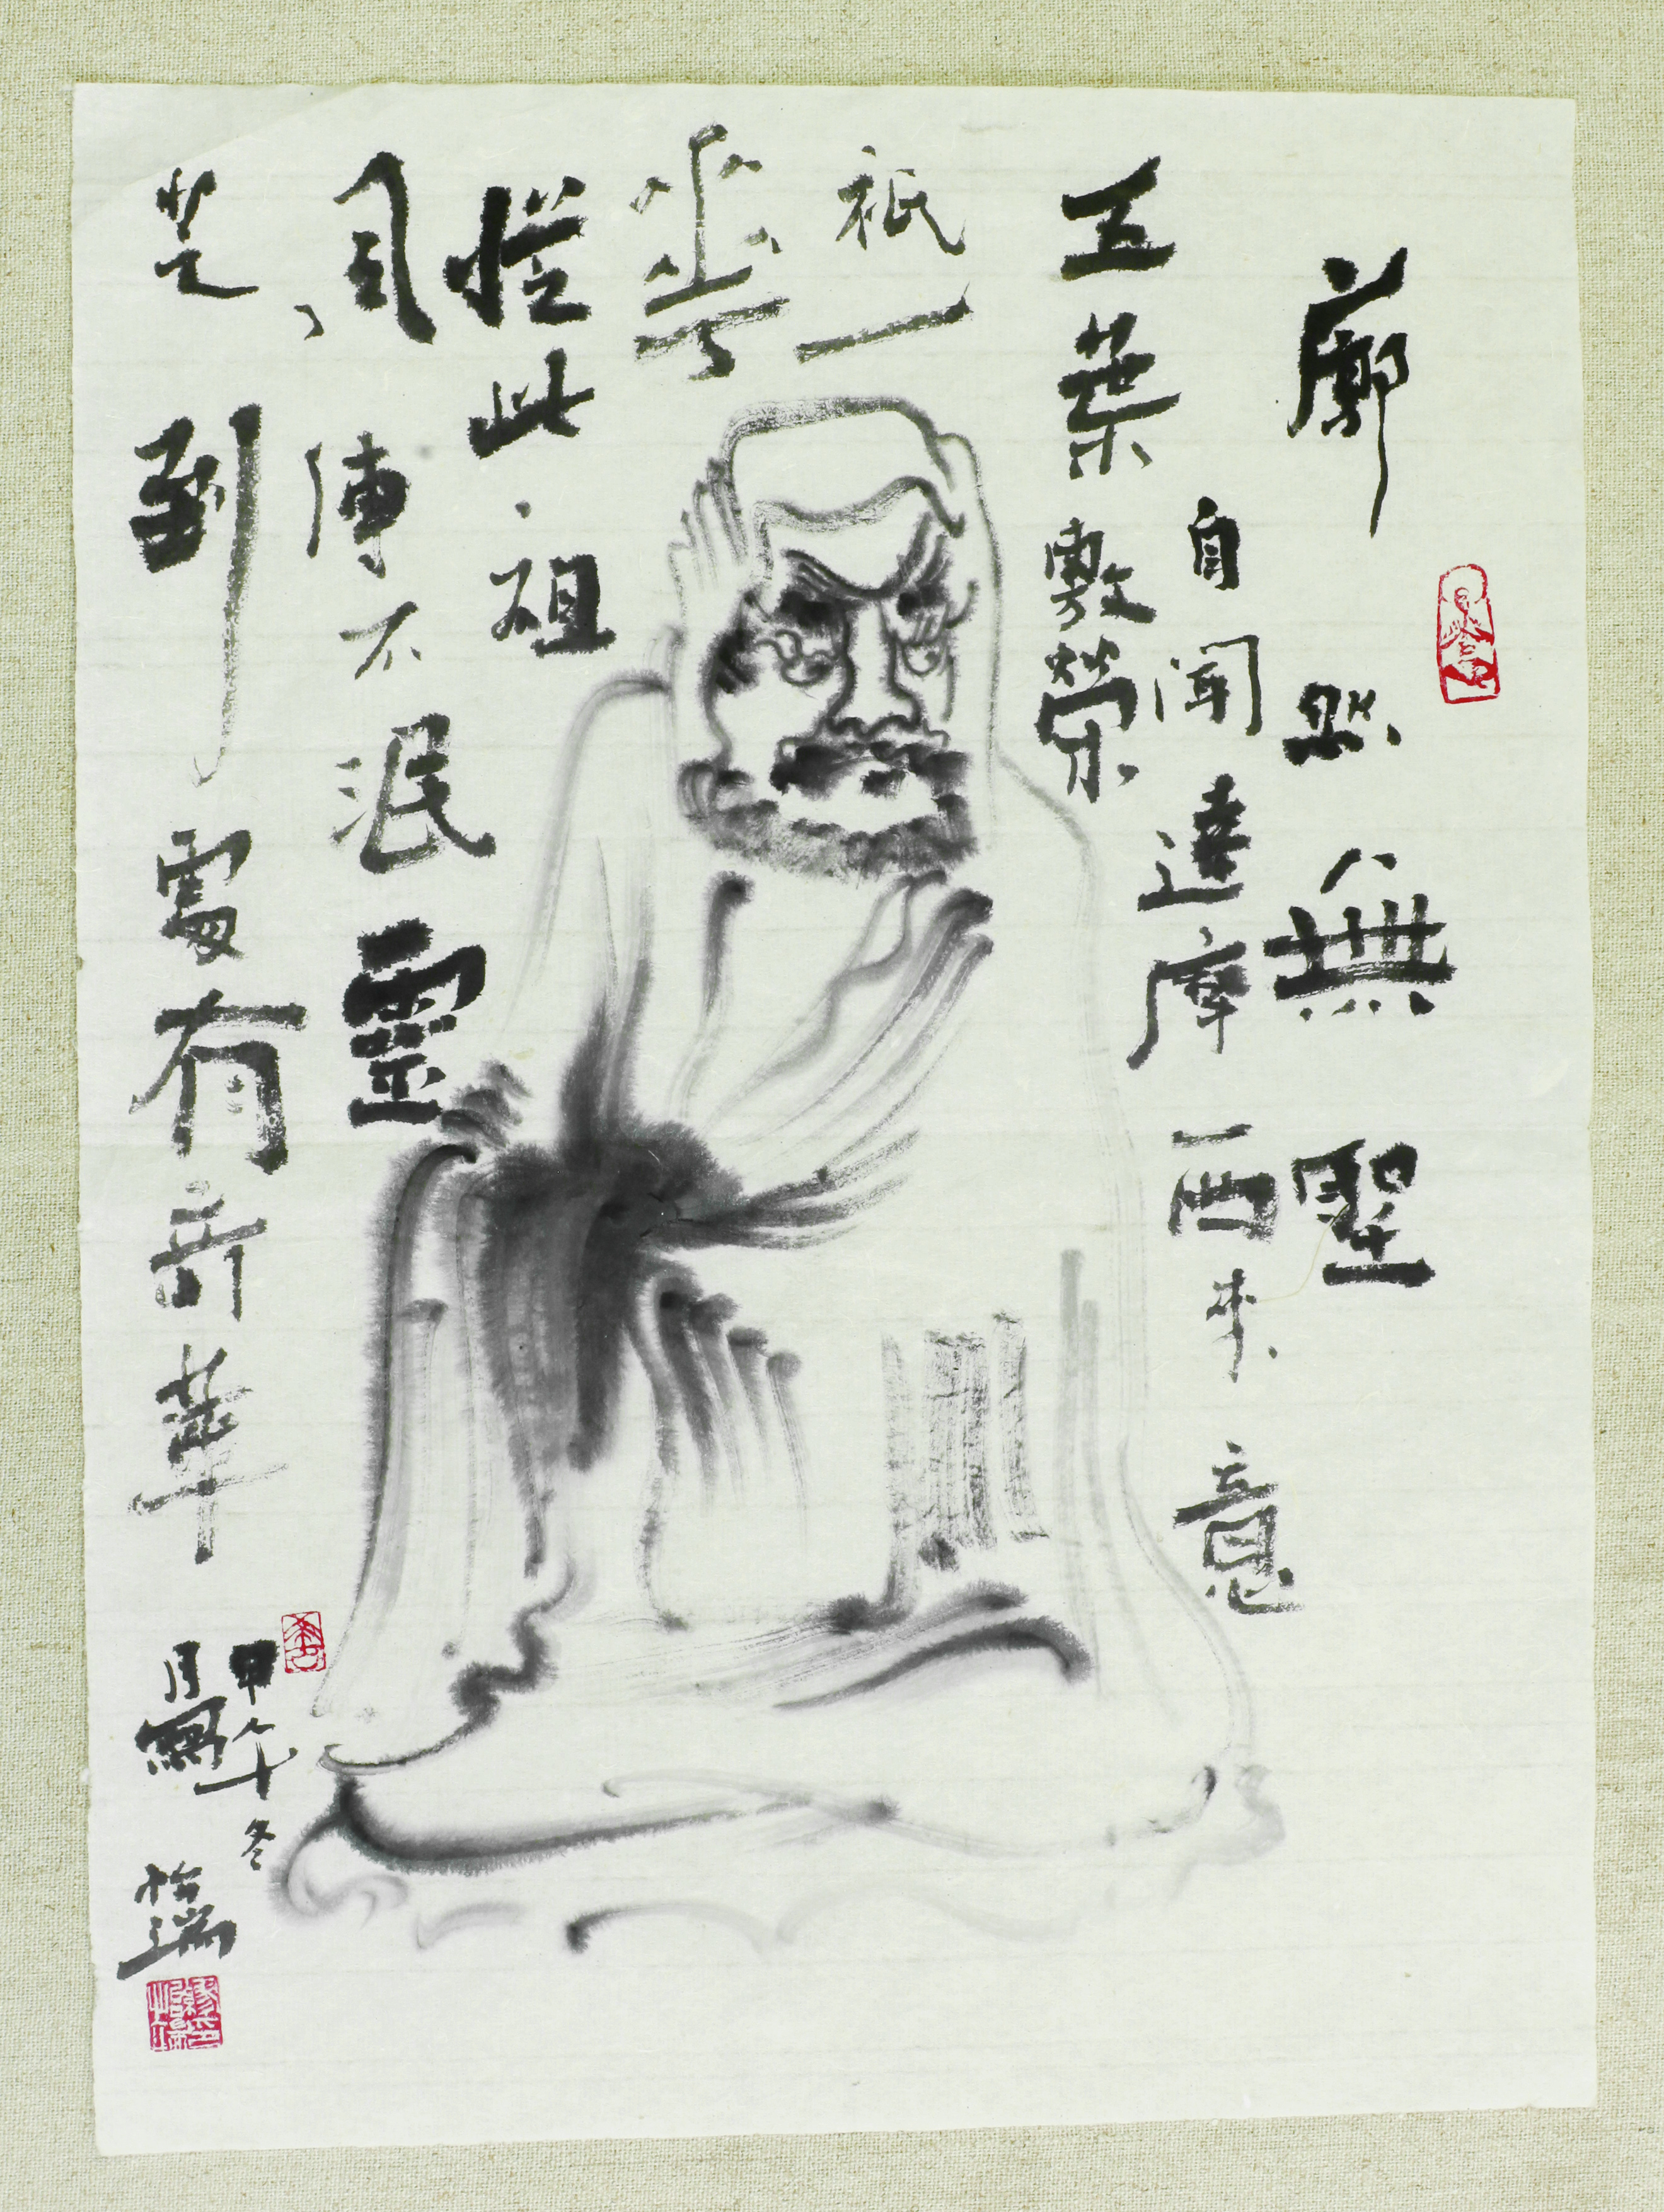 廓然無聖
自聞達摩西來意
五葉敷榮
祇一
華
從此祖
風傳不泯靈
芝到處有奇華
甲午冬
月寫